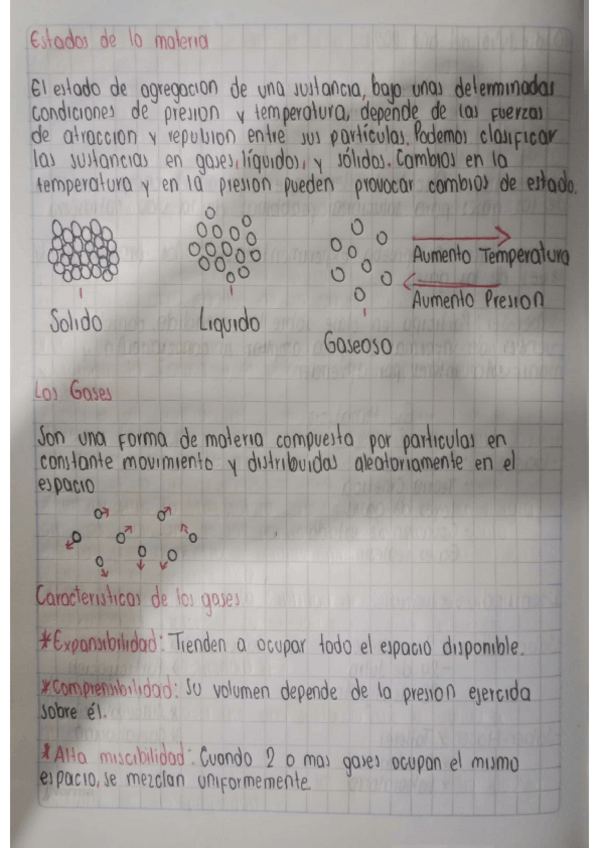 Estados de la materia
El estado de agregacion de una sustancia, bajo unas determinadas
condiciones de presion y temperatura, depende de las fuerzas
de atraccion y repulsion entre sus partículas. Podemos clasificar
las sustancias en gases, líquidos, y sólidos. Cambios en la
temperatura y en la presion pueden provocar cambios de estado.
Aumento Temperatura
Aumento Presion
Solido
Liquido
Gaseoso
Los Gases
Son una forma de materia compuesta por particulas en
constante movimiento y distribuidas aleatoriamente en el
espacio
Caracteristicas de los gases
*Expansibilidad: Tienden a ocupar todo el espacio disponible.
*Comprensibilidad: Su volumen depende de la presion ejercida
sobre él.
*Alta miscibilidad: Cuando 2 o mas gases ocupan el mismo
espacio, se mezclan uniformemente